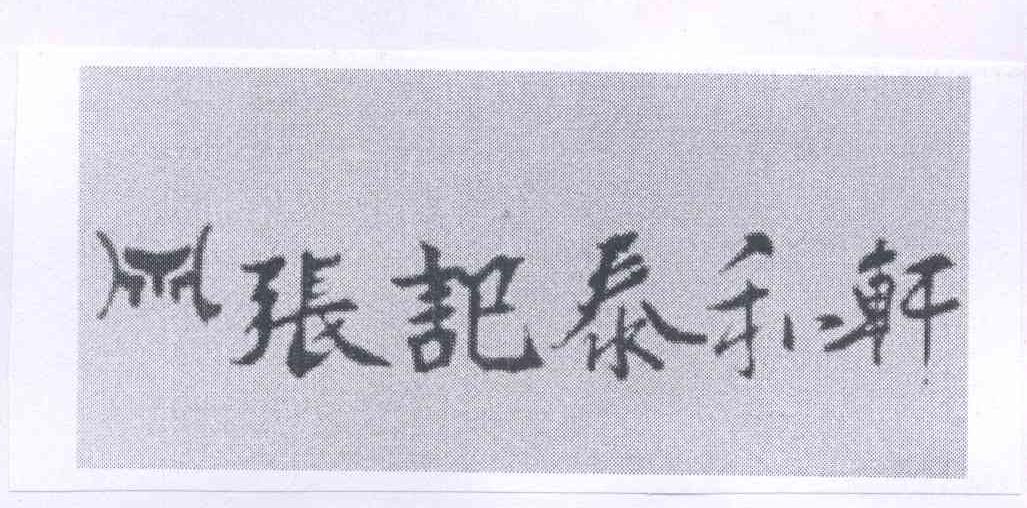 張記泰和軒